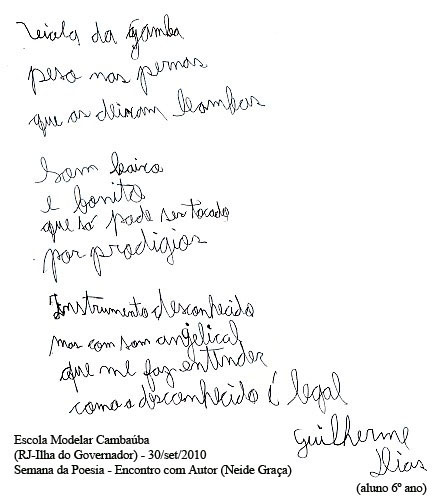 Viola da gamba
peso nas pernas
que as deixam bambas
Som baixo
e bonito
que só pode ser tocado
por prodígios
Instrumento desconhecido
mas com som angelical
que me faz entender
como o desconhecido é legal
Guilherme
Dias
(aluno 6º ano)
Escola Modelar Cambaúba
(RJ-Ilha do Governador) - 30/set/2010
Semana da Poesia - Encontro com Autor (Neide Graça)